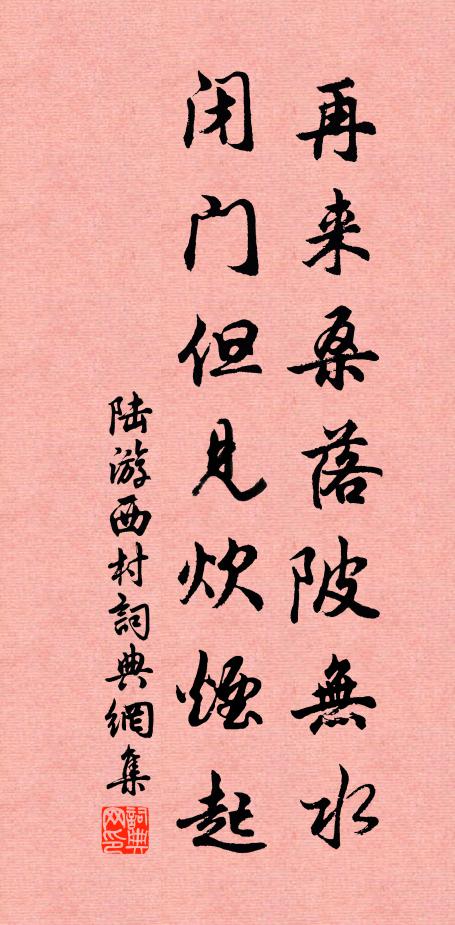 再来桑落陂無水
闭门但見炊煙起
陆游西村詞典網集
詞典网印